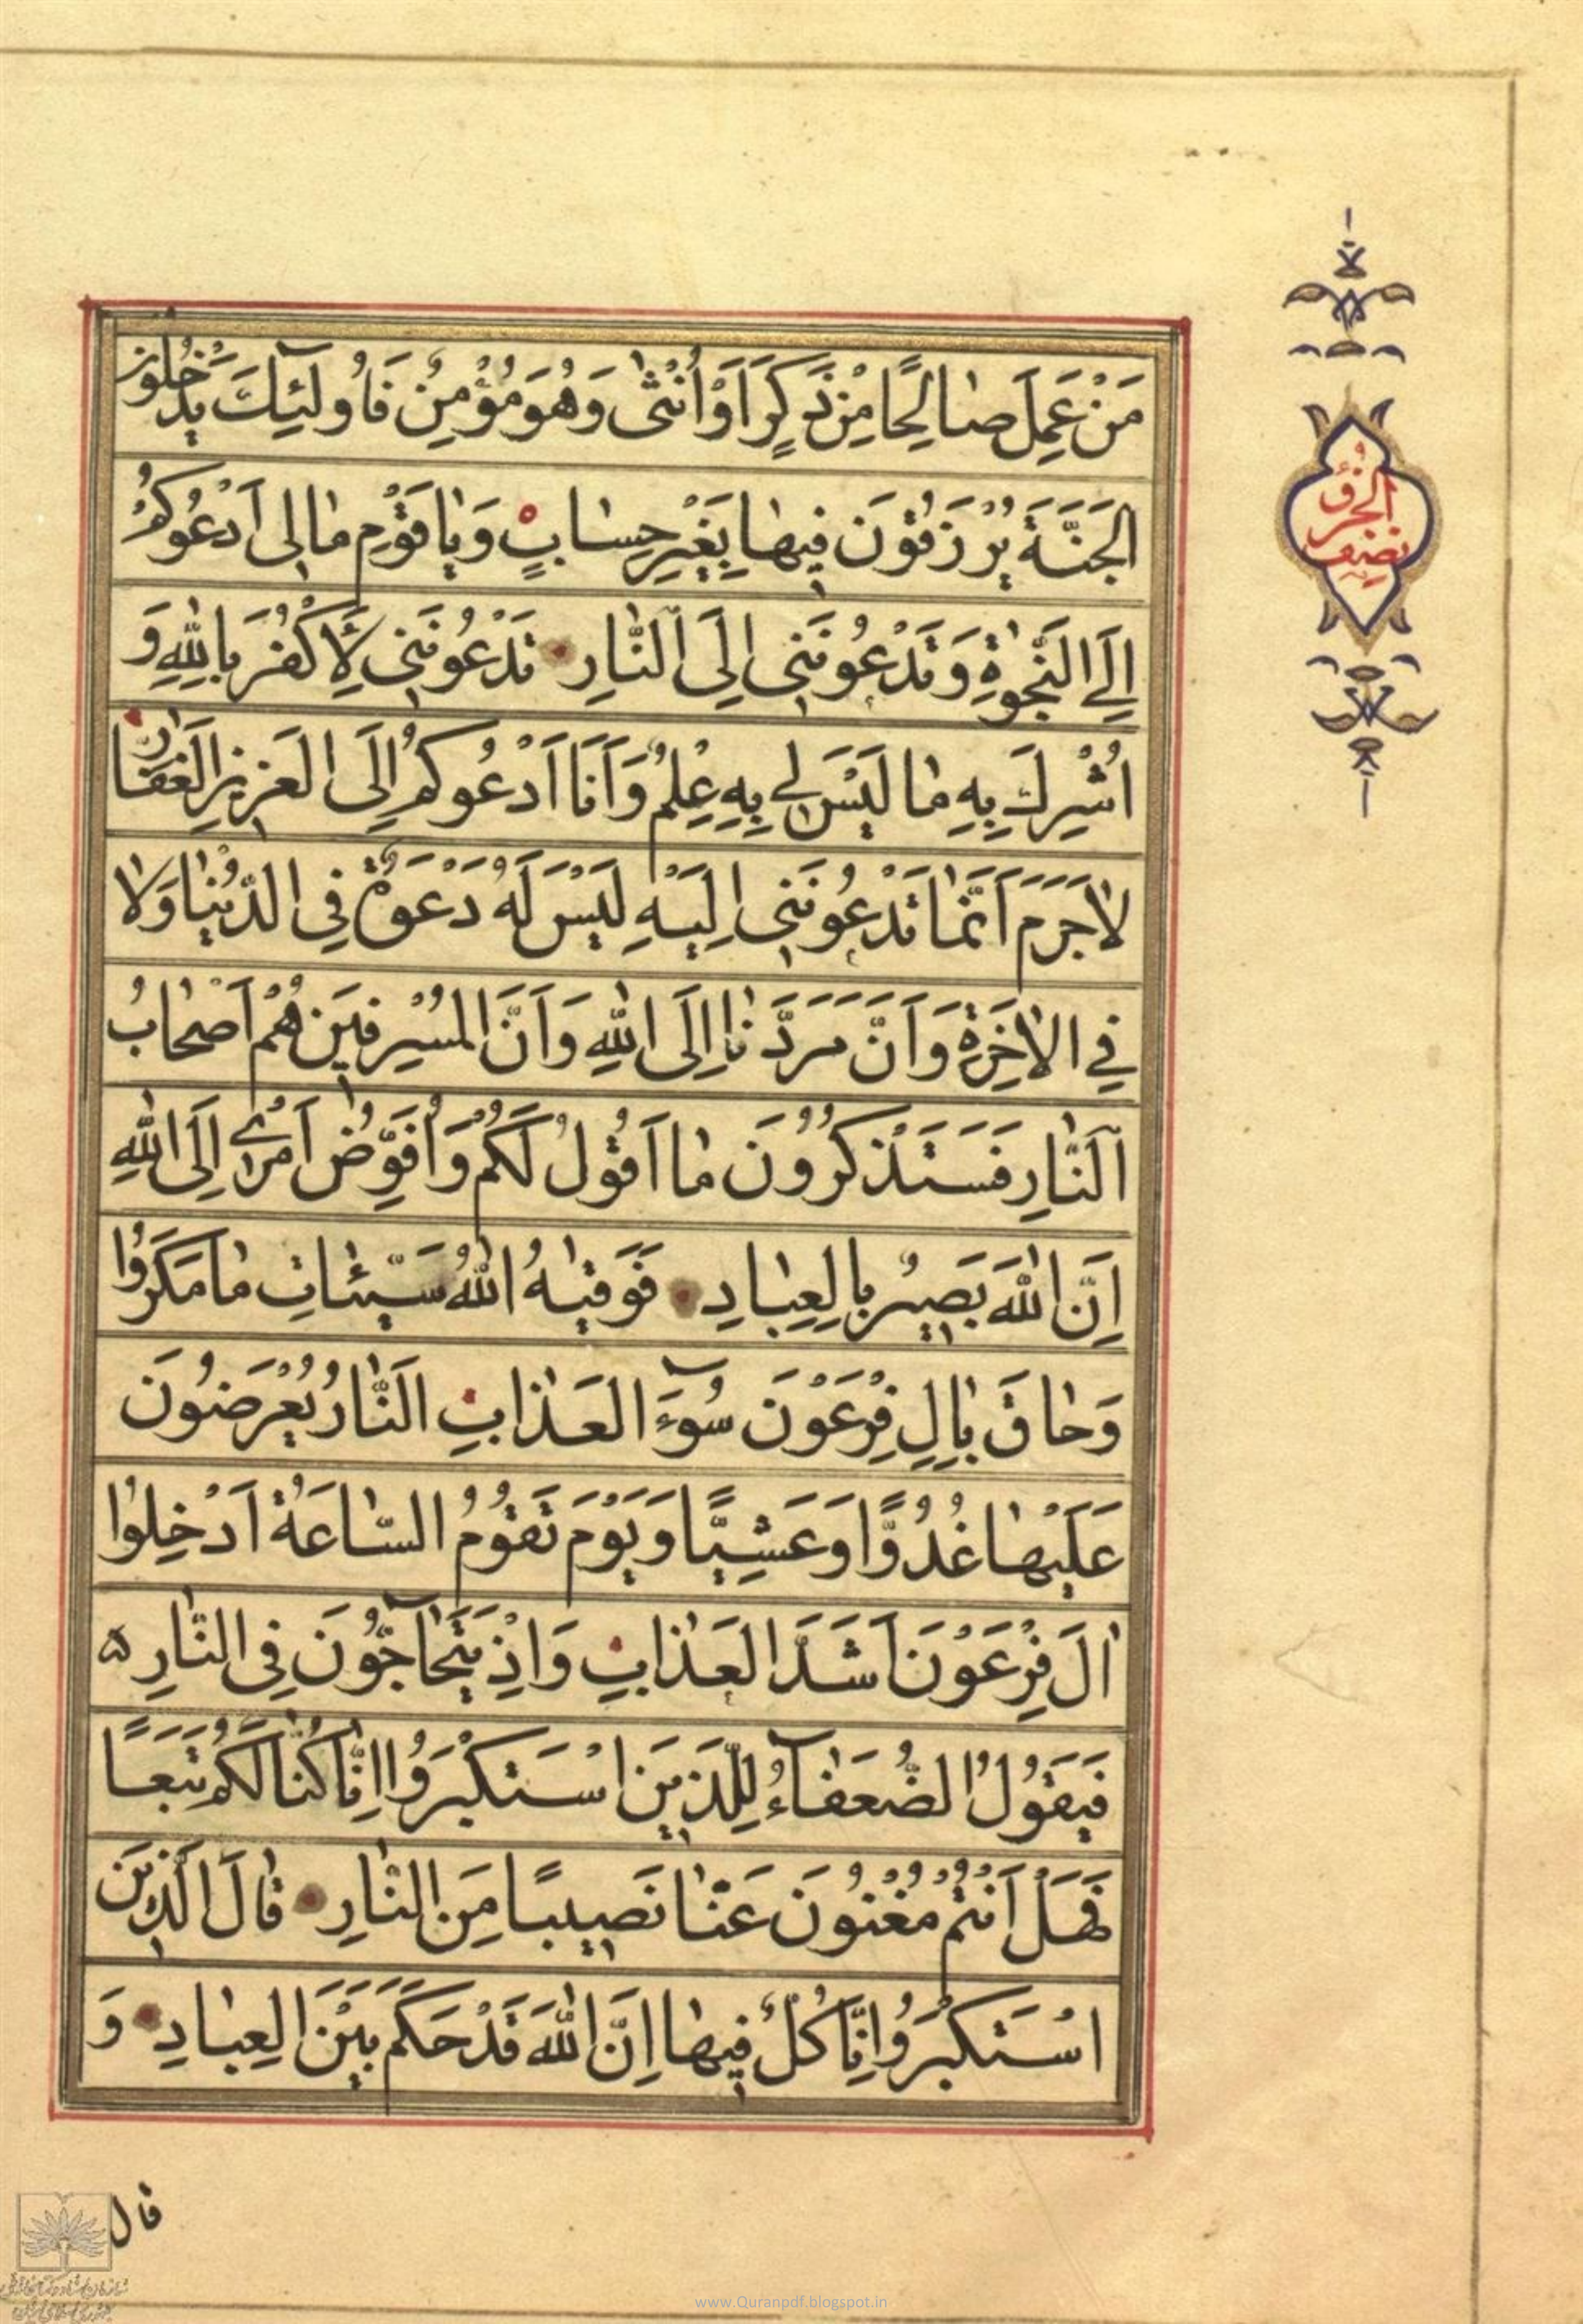 مَنْ عَمِلَ صٰالِحًا مِنْ ذَكَرٍ اَوْ اُنْثٰى وَهُوَ مُؤْمِنٌ فَاُولٰٓئِكَ يَدْخُلُونَ
الجَنَّةَ يُرْزَقُونَ فِيهٰا بِغَيْرِ حِسٰابٍ وَيٰا قَوْمِ مٰا لِى اَدْعُوكُمْ
اِلَى النَّجٰوةِ وَتَدْعُونَنِى اِلَى النّٰارِ تَدْعُونَنِى لِاَكْفُرَ بِاللّٰهِ وَ
اُشْرِكَ بِهِ مٰا لَيْسَ لِى بِهِ عِلْمٌ وَاَنَا اَدْعُوكُمْ اِلَى العَزِيزِ الغَفّٰارِ
لاٰ جَرَمَ اَنَّمٰا تَدْعُونَنِى اِلَيْهِ لَيْسَ لَهُ دَعْوَةٌ فِى الدُّنْيٰا وَلاٰ
فِى الاٰخِرَةِ وَاَنَّ مَرَدَّنٰا اِلَى اللّٰهِ وَاَنَّ المُسْرِفِينَ هُمْ اَصْحٰابُ
النّٰارِ فَسَتَذْكُرُونَ مٰا اَقُولُ لَكُمْ وَاُفَوِّضُ اَمْرِى اِلَى اللّٰهِ
اِنَّ اللّٰهَ بَصِيرٌ بِالعِبٰادِ فَوَقٰيهُ اللّٰهُ سَيِّئٰاتِ مٰا مَكَرُوا
وَحٰاقَ بِاٰلِ فِرْعَوْنَ سُوٓءُ العَذٰابِ النّٰارُ يُعْرَضُونَ
عَلَيْهٰا غُدُوًّا وَعَشِيًّا وَيَوْمَ تَقُومُ السّٰاعَةُ اَدْخِلُوا
اٰلَ فِرْعَوْنَ اَشَدَّ العَذٰابِ وَاِذْ يَتَحٰآجُّونَ فِى النّٰارِ
فَيَقُولُ الضُّعَفٰآءُ لِلَّذِينَ اسْتَكْبَرُوا اِنّٰا كُنّٰا لَكُمْ تَبَعًا
فَهَلْ اَنْتُمْ مُغْنُونَ عَنّٰا نَصِيبًا مِنَ النّٰارِ قٰالَ الَّذِينَ
اسْتَكْبَرُوا اِنّٰا كُلٌّ فِيهٰا اِنَّ اللّٰهَ قَدْ حَكَمَ بَيْنَ العِبٰادِ وَ
قال
نصف
الحزب
www.Quranpdf.blogspot.in